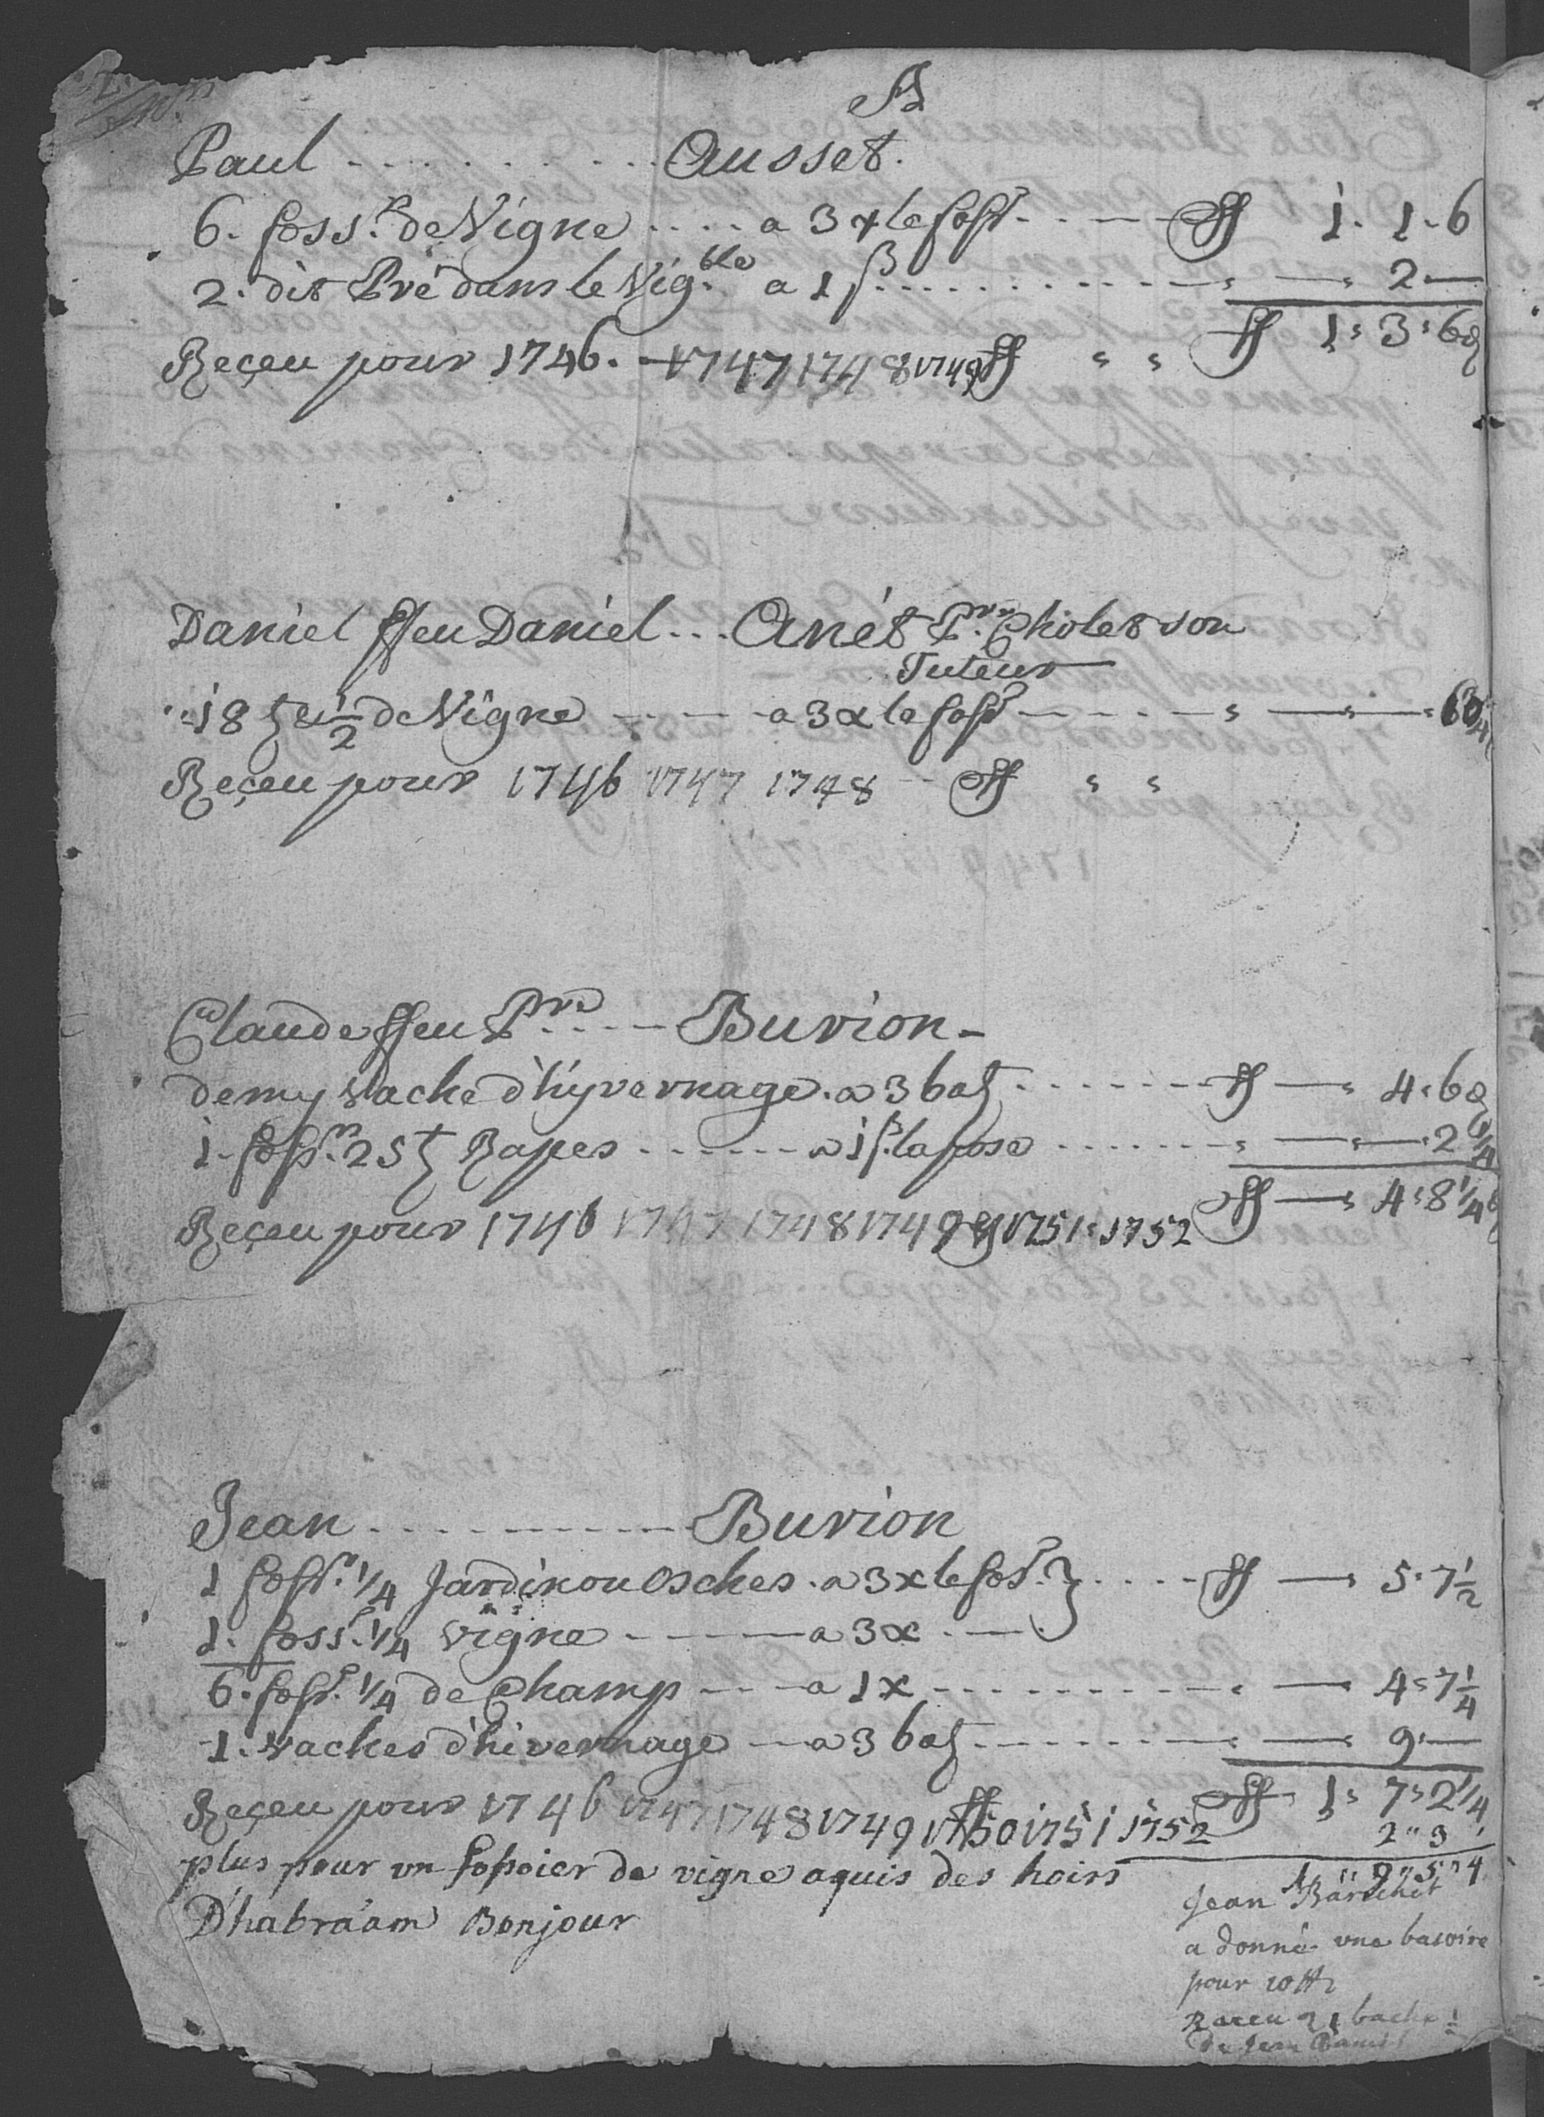 A
Paul - - - - - - - - - - Ausset.
6. foss.r de Vigne - - - - a 3 x le foss.r - - - - ff 1 . 1 . 6
2. dit Pré dans le Vig.ble a 1 ß - - - - - - - - - — 2 —
ff 1 : 3 : 6 ₰
Reçeu pour 1746. - 1747 1748 1749 ff " "
Daniel ffeu Daniel - - - Anét P.re Cholet son
Tuteur
18 ꝷ et 1/2 de Vigne - - - - a 3 x le foss.r - - - - - — —
Reçeu pour 1746 1747 1748 - ff " "
Claude ffeu P.re - - - - Buvion -
demy vache d'hÿvernage . a 3 batz - - - - - ff — 4 . 6 ₰
1. foss.r 25 ꝷ Rapes - - - - - a 1 ß la pose - - - - - — — 2 1/4
ff — 4 : 8 1/4
Reçeu pour 1746 1747 1748 1749 1751 : 1752
Jean - - - - - - - - - Buvion
1 foss.r 1/4 Jardin ou Osches . a 3 x le fos.r } - - - - ff — 5 . 7 1/2
1. foss.r 1/4 Vigne - - - - - a 3 x - - -
6. foss.r 1/4 de Champ - - - a 1 x - - - - - - - - - — 4 : 7 1/4
1. vaches d'hivernage - - a 3 batz - - - - - - - — 9 —
ff 1 : 7 : 2 1/4
Reçeu pour 1746 1747 1748 1749 1750 1751 1752
2 " 3
plus pour un fossoier de vigne aquis des hoirs
1 " 9 " 5 " 1/4
D'habraam Bonjour
Jean
a donné une
pour 10 ff
Receu 21
de Jean Daniel